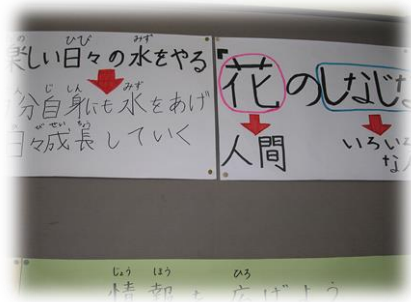 楽しい日々の水をやる
分自身にも水をあげ
日々成長していく
「花のしなじな
人間
いろいろ
な人
じょう ほう ひろ
情報を広げよう